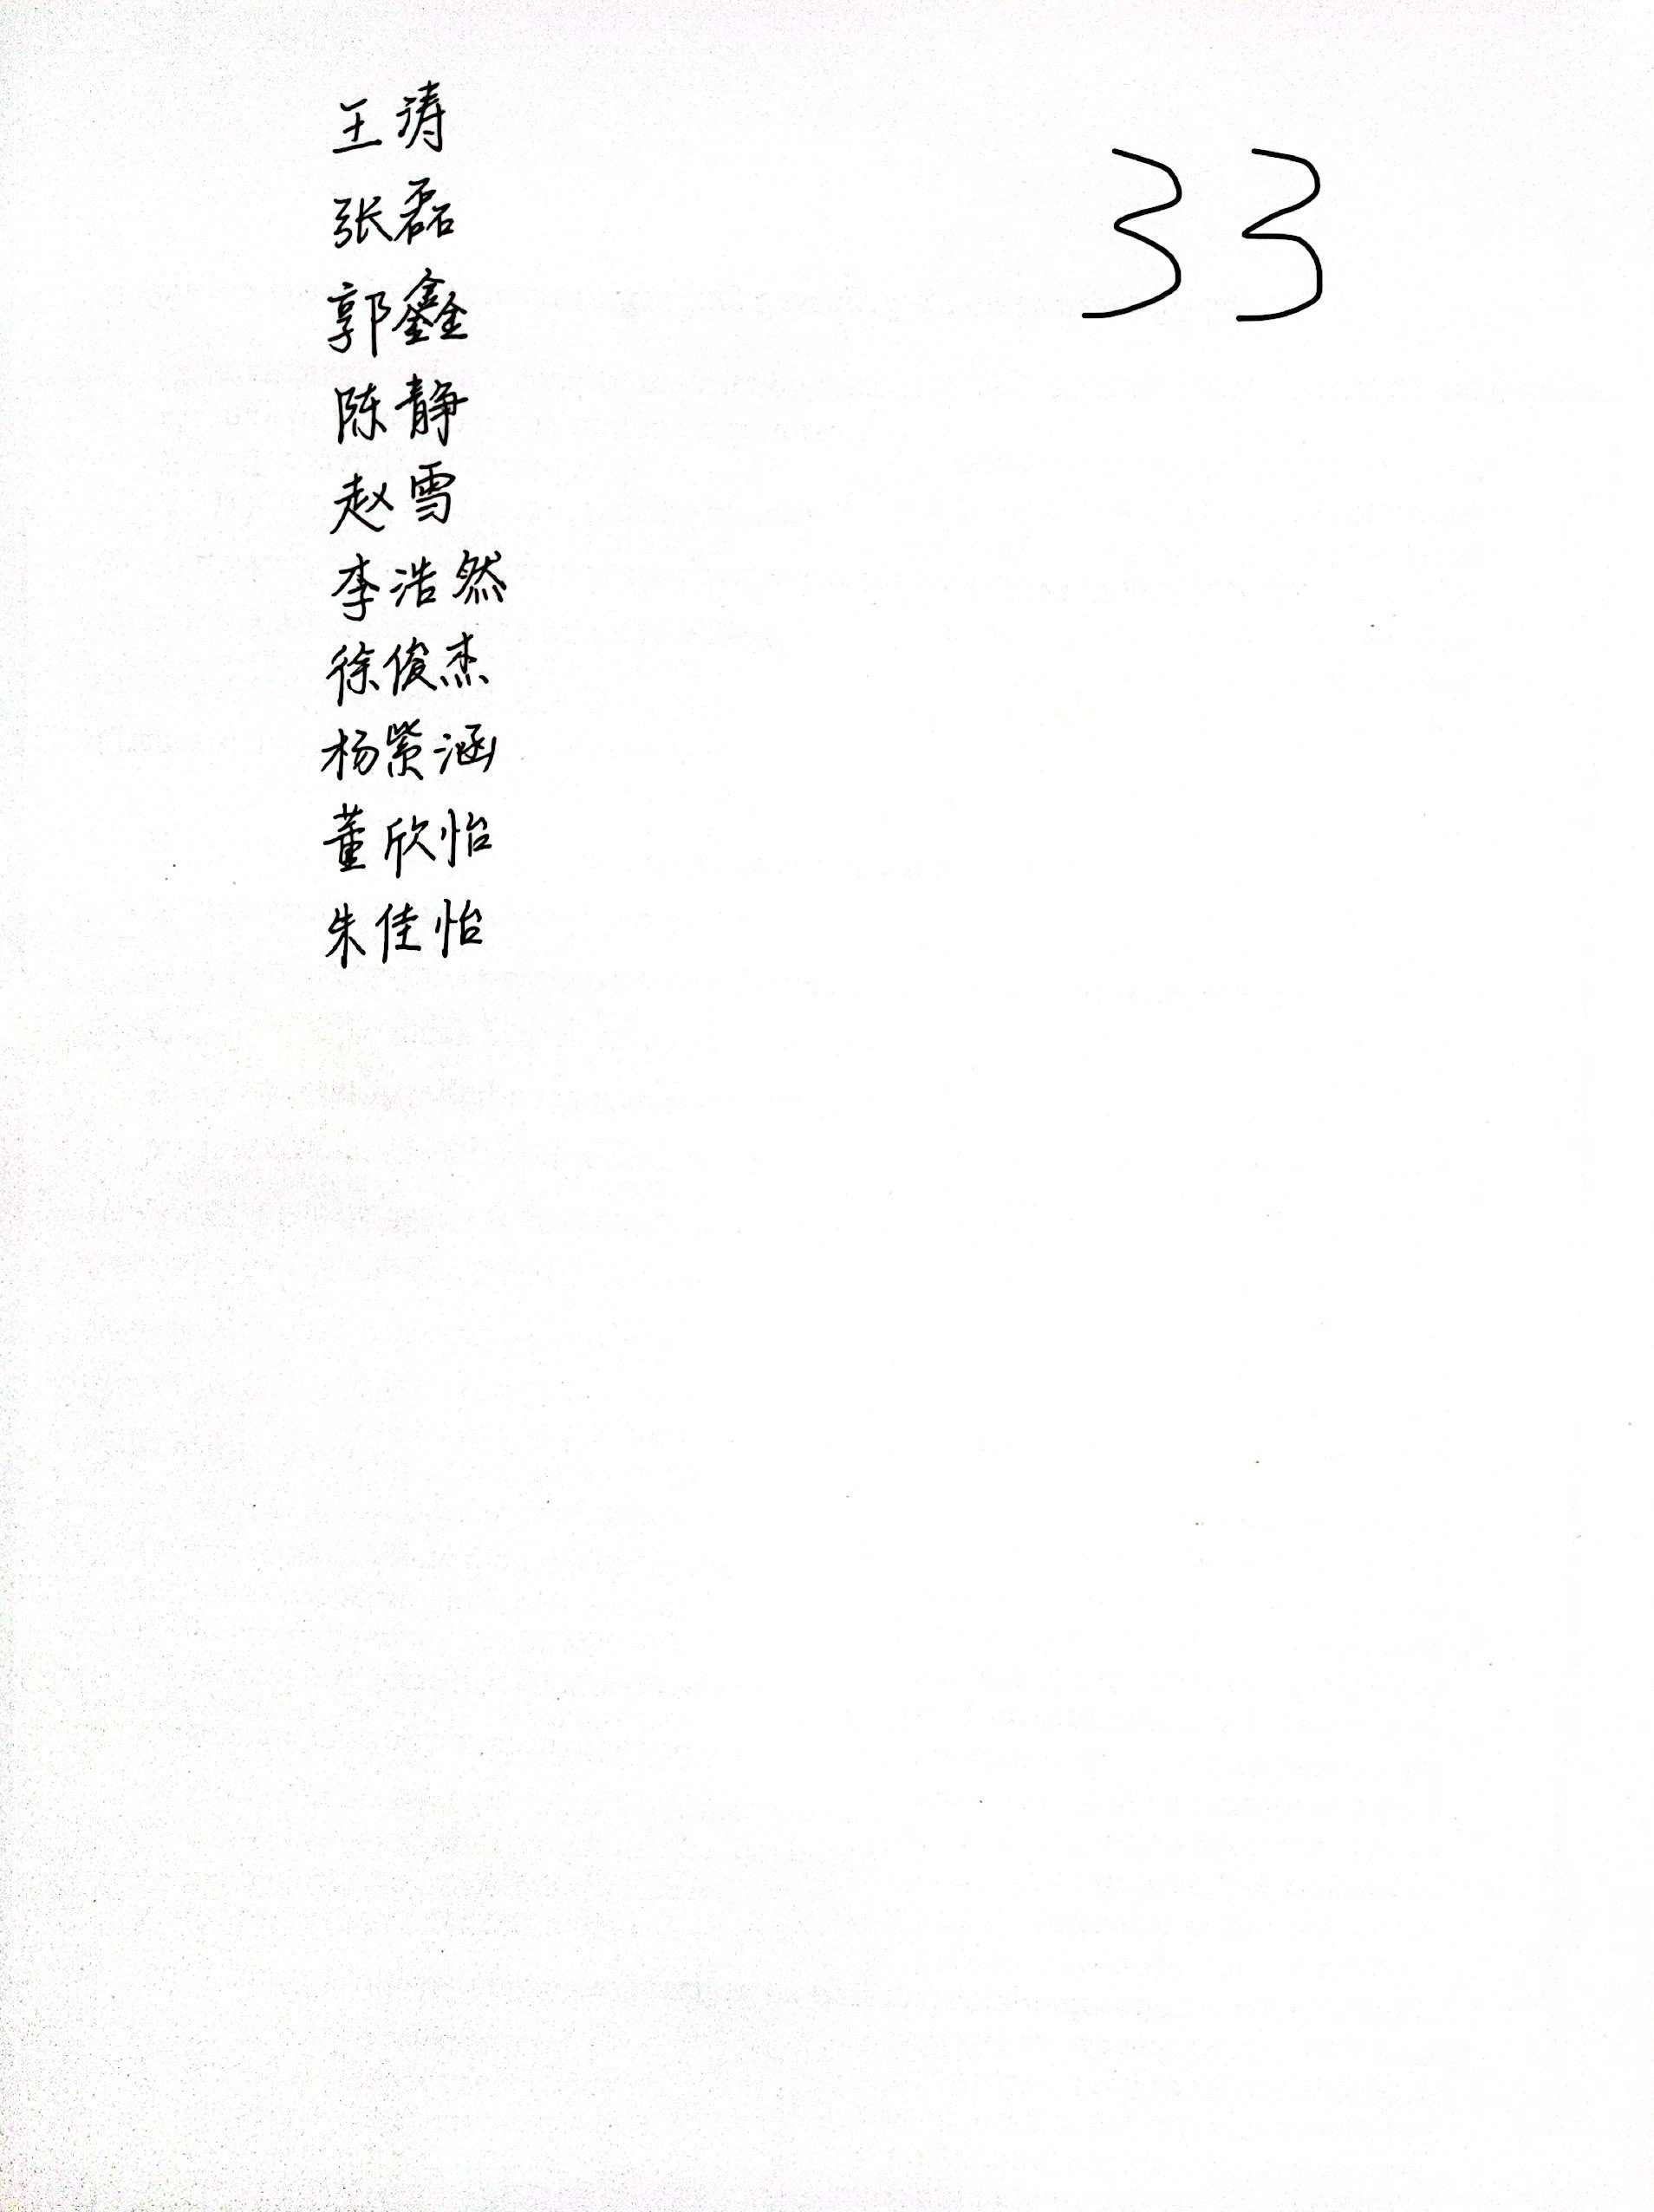 王涛
33
张磊
郭鑫
陈静
赵雪
李浩然
徐俊杰
杨紫涵
董欣怡
朱佳怡